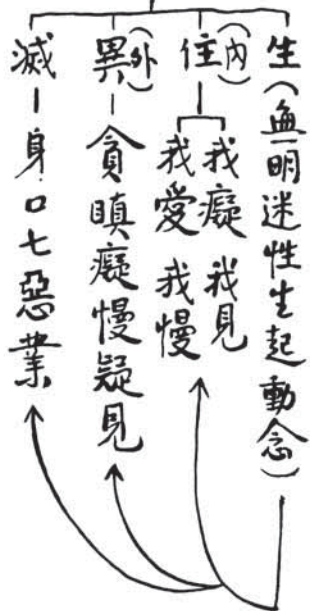 生（無明迷性生起動念）
住（內）
我癡 我見
我愛 我慢
異（外）－貪瞋癡慢疑見
滅－身口七惡業